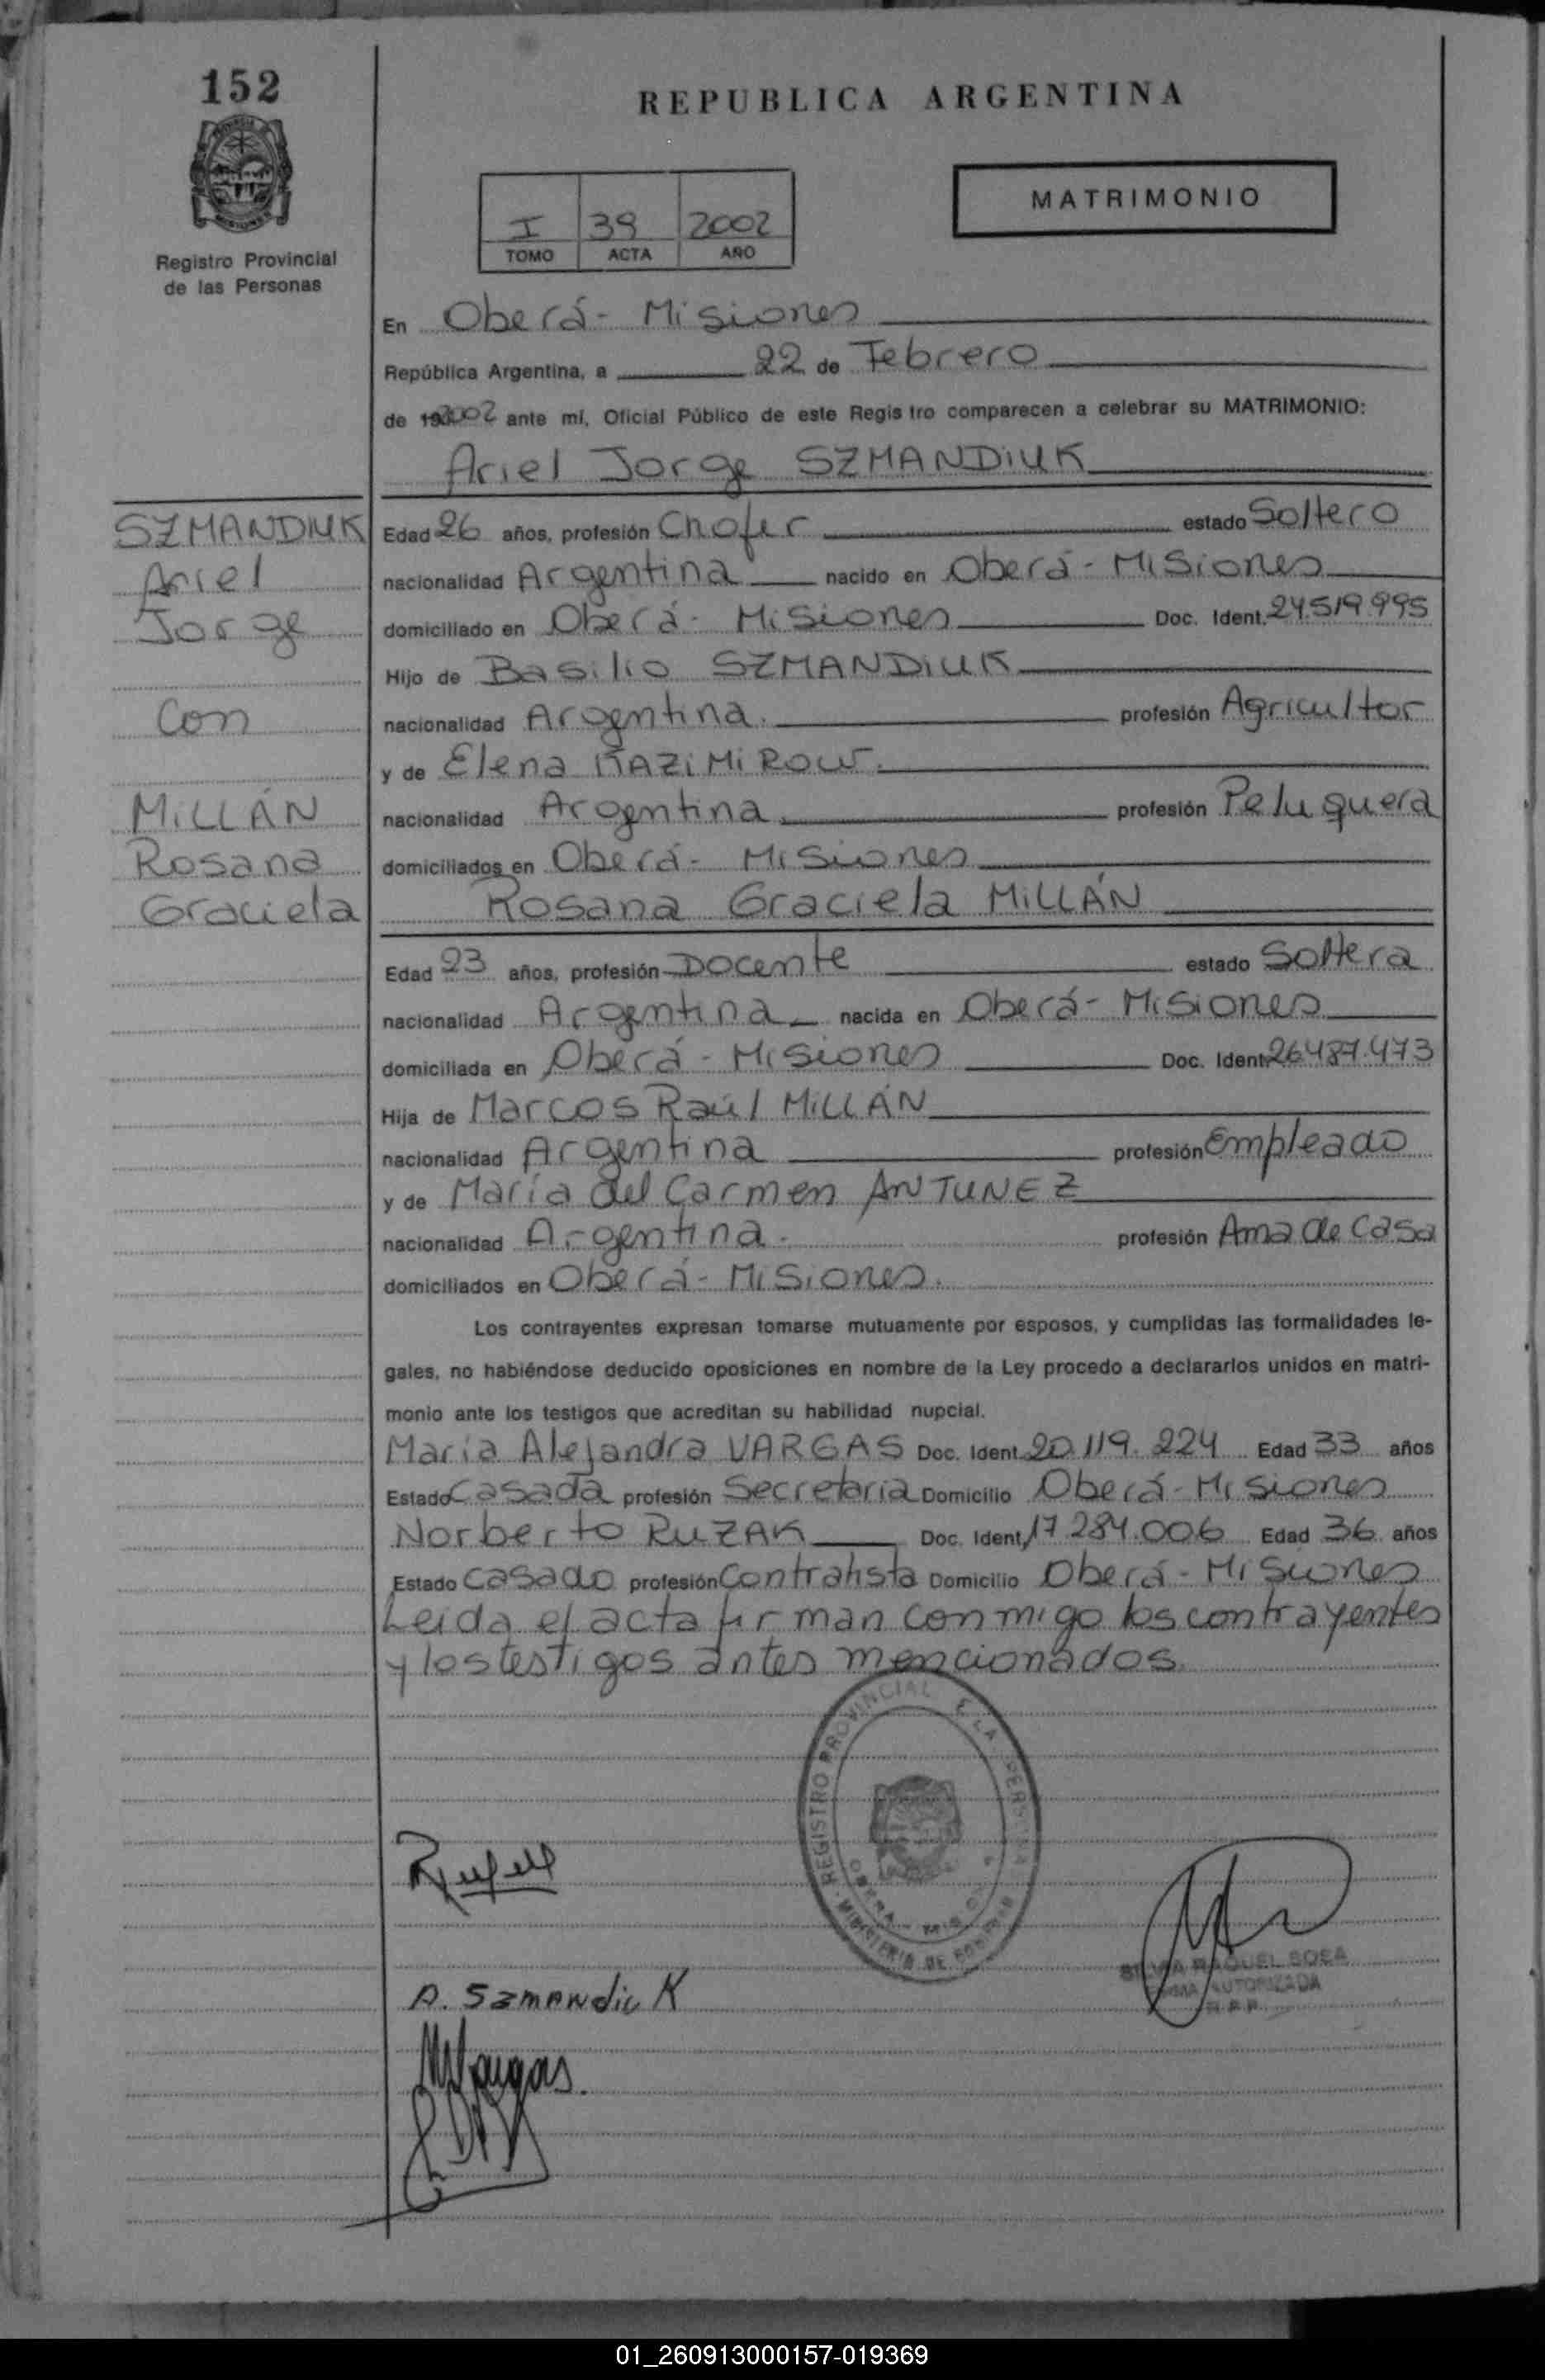 152
REPUBLICA ARGENTINA
MATRIMONIO
I 39 2002
TOMO ACTA AÑO
Registro Provincial
de las Personas
En Oberá - Misiones
República Argentina, a 22 de Febrero
de 2002 ante mí, Oficial Público de este Regis tro comparecen a celebrar su MATRIMONIO:
Ariel Jorge SZMANDIUK
SZMANDIUK
Ariel
Jorge
Con
MILLÁN
Rosana
Graciela
Edad 26 años, profesión Chofer estado Soltero
nacionalidad Argentina nacido en Oberá - Misiones
domiciliado en Oberá - Misiones Doc. Ident. 24.519.995
Hijo de Basilio SZMANDIUK
nacionalidad Argentina. profesión Agricultor
y de Elena KAZIMIROW.
nacionalidad Argentina profesión Peluquera
domiciliados en Oberá - Misiones
Rosana Graciela MILLÁN
Edad 23 años, profesión Docente estado Soltera
nacionalidad Argentina nacida en Oberá - Misiones
domiciliada en Oberá - Misiones Doc. Ident. 26.487.473
Hija de Marcos Raúl MILLÁN
nacionalidad Argentina profesión Empleado
y de María del Carmen ANTUNEZ
nacionalidad Argentina. profesión Ama de Casa
domiciliados en Oberá - Misiones.
Los contrayentes expresan tomarse mutuamente por esposos, y cumplidas las formalidades le-
gales, no habiéndose deducido oposiciones en nombre de la Ley procedo a declararlos unidos en matri-
monio ante los testigos que acreditan su habilidad nupcial.
María Alejandra VARGAS Doc. Ident. 20.119.224 Edad 33 años
Estado Casada profesión Secretaria Domicilio Oberá - Misiones
Norberto RUZAK Doc. Ident. 17.284.006 Edad 36 años
Estado Casado profesión Contratista Domicilio Oberá - Misiones
Leída el acta firman conmigo los contrayentes
y los testigos antes mencionados.
REGISTRO PROVINCIAL
MINISTERIO DE
RAQUEL SOSA
AUTORIZADA
A. SzmANdiuK
MVargas.
01_260913000157-019369